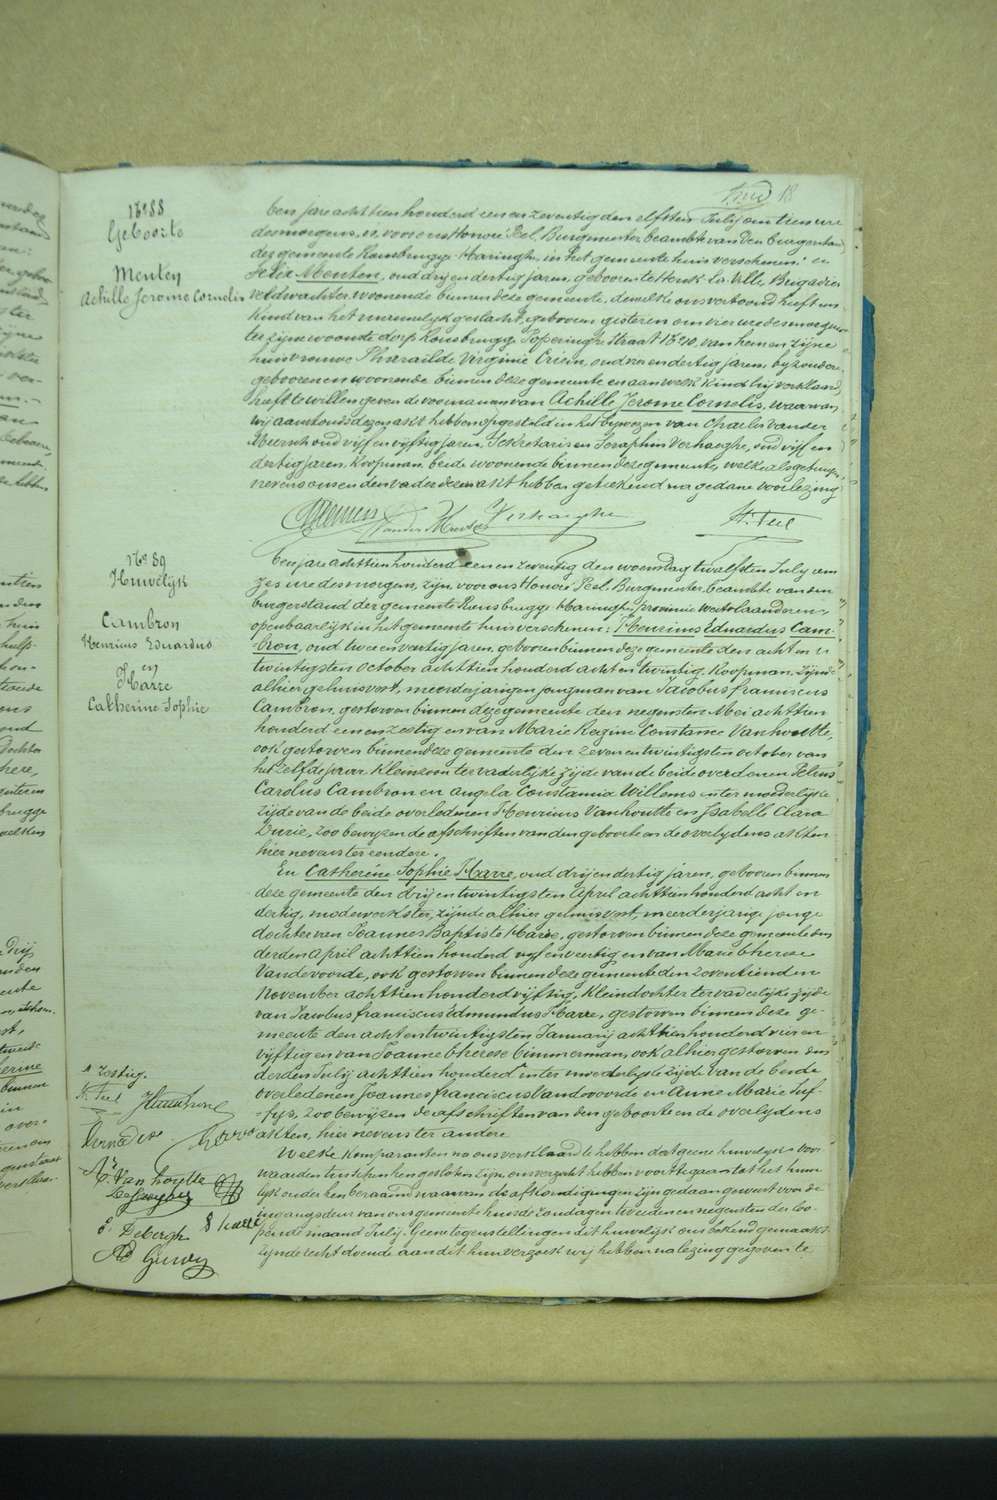 18
N° 88
Geboorte
Menten
Achille Jerome Cornelis
ben jare acht tien honderd een en zeventig den elfsten July om tien ure
des morgens, is voor ons Honoré Peel, Burgmeester, beambte van den burgerstand
der gemeente Rousbrugge-Haringhe, in het gemeente huis verschenen:
Menten, oud dry en dertig jaren, geboren te Brigadier
veldwachter, woonende binnen deze gemeente, dewelke ons vertoond heeft een
kind van het mannelyk geslacht, geboren gisteren om vier ure des morgens
ter zijne woonste dorp Rousbrugge Poperinghe straat N° 20, van hem en zijne
huisvrouwe Pharaïlde Virginie oud en dertig jaren, byzondere
geboren en woonende binnen deze gemeente en aan welk kind hij verklaard
heeft te willen geven de voornamen van Achille, Jerome Cornelis, waarvan
wij aanstonds dezen akt hebben opgesteld in het bywezen van Charles Vander
Meersch oud vijf en vyftig jaren, Sekretaris en Seraphin Verhaeghe, oud vijf en
dertig jaren, Koopman, beide woonende binnen deze gemeente, welke als getuigen
nevens ons en den vader dezen akt hebben geteekend na gedane voorlezing
Menten Vander Meersch Verhaeghe H. Peel
N° 89
Huwelijk
Cambron
Henricus Eduardus
en
Harre
Catherine Sophie
ben jare achttien honderd een en zeventig den woensdag twaalfsten July om
zes ure des morgens, zijn voor ons Honoré Peel, Burgmeester, beambte van den
burgerstand der gemeente Rousbrugge-Haringhe, provincie Westvlaanderen,
openbaarlijk in het gemeente huis verschenen: Henricus Eduardus Cam-
bron, oud twee en veertig jaren, geboren binnen deze gemeente den acht en
twintigsten October achttien honderd acht en twintig, Koopman, zijnde
alhier gehuisvest, meerderjarigen jongman van Jacobus Franciscus
Cambron, gestorven binnen deze gemeente den negensten Mei achttien
honderd een en zestig en van Marie Regine Constance Vanhoutte,
ook gestorven binnen deze gemeente den zeven en twintigsten October van
het zelfde jaar, Kleinzoon ter vaderlijke zijde van de beide overledenen Petrus
Carolus Cambron en Angela Constantia Willems en ter moederlijke
zijde van de beide overledenen Henricus Vanhoutte en Isabelle Clara
Durie, zoo bewyzen de afschriften van den geboorte en de overlydens akten
hier nevens ter eendere.
En Catherine Sophie Harre, oud dry en dertig jaren, geboren binnen
deze gemeente den dry en twintigsten April achttien honderd acht en
dertig, modewerkster, zijnde alhier gehuisvest, meerderjarige jonge
dochter van Joannes Baptiste Harre, gestorven binnen deze gemeente den
derden April achttien honderd vyf en veertig en van Marie Therese
Vandevoorde, ook gestorven binnen deze gemeente den zeventienden
November achttien honderd vyftig, Kleindochter ter vaderlijke zijde
van Jacobus Franciscus Edmundus Harre, gestorven binnen deze ge-
meente den acht en twintigsten January achttien honderd vier en
vijftig en van Joanne Therese Timmerman, ook alhier gestorven den
derden July achttien honderd en ter moederlyke zijde van de beide
overledenen Joannes Franciscus Vandevoorde en Anne Marie Juf-
fys, zoo bewijzen de afschriften van den geboorte en de overlydens
akten, hier nevens ter andere
Welke Komparanten na ons verklaard te hebben dat geene huwelyks voor
waarden tusschen hen gesloten zijn, ons verzocht hebben voort te gaan tot het huw
lyk onder hen beraamd waarvan de afkondigingen zijn gedaan geweest voor de
ingangdeur van ons gemeente huis de zondagen tweeden en negensten der loo-
pende maand July. Geene tegenstellingen dit huwelyk ons bekend gemaakt
zijnde recht doende aan dit hun verzoek wij hebben na lezing gegeven te
zestig.
H. Peel
C. Van houtte
Debergh S Harre